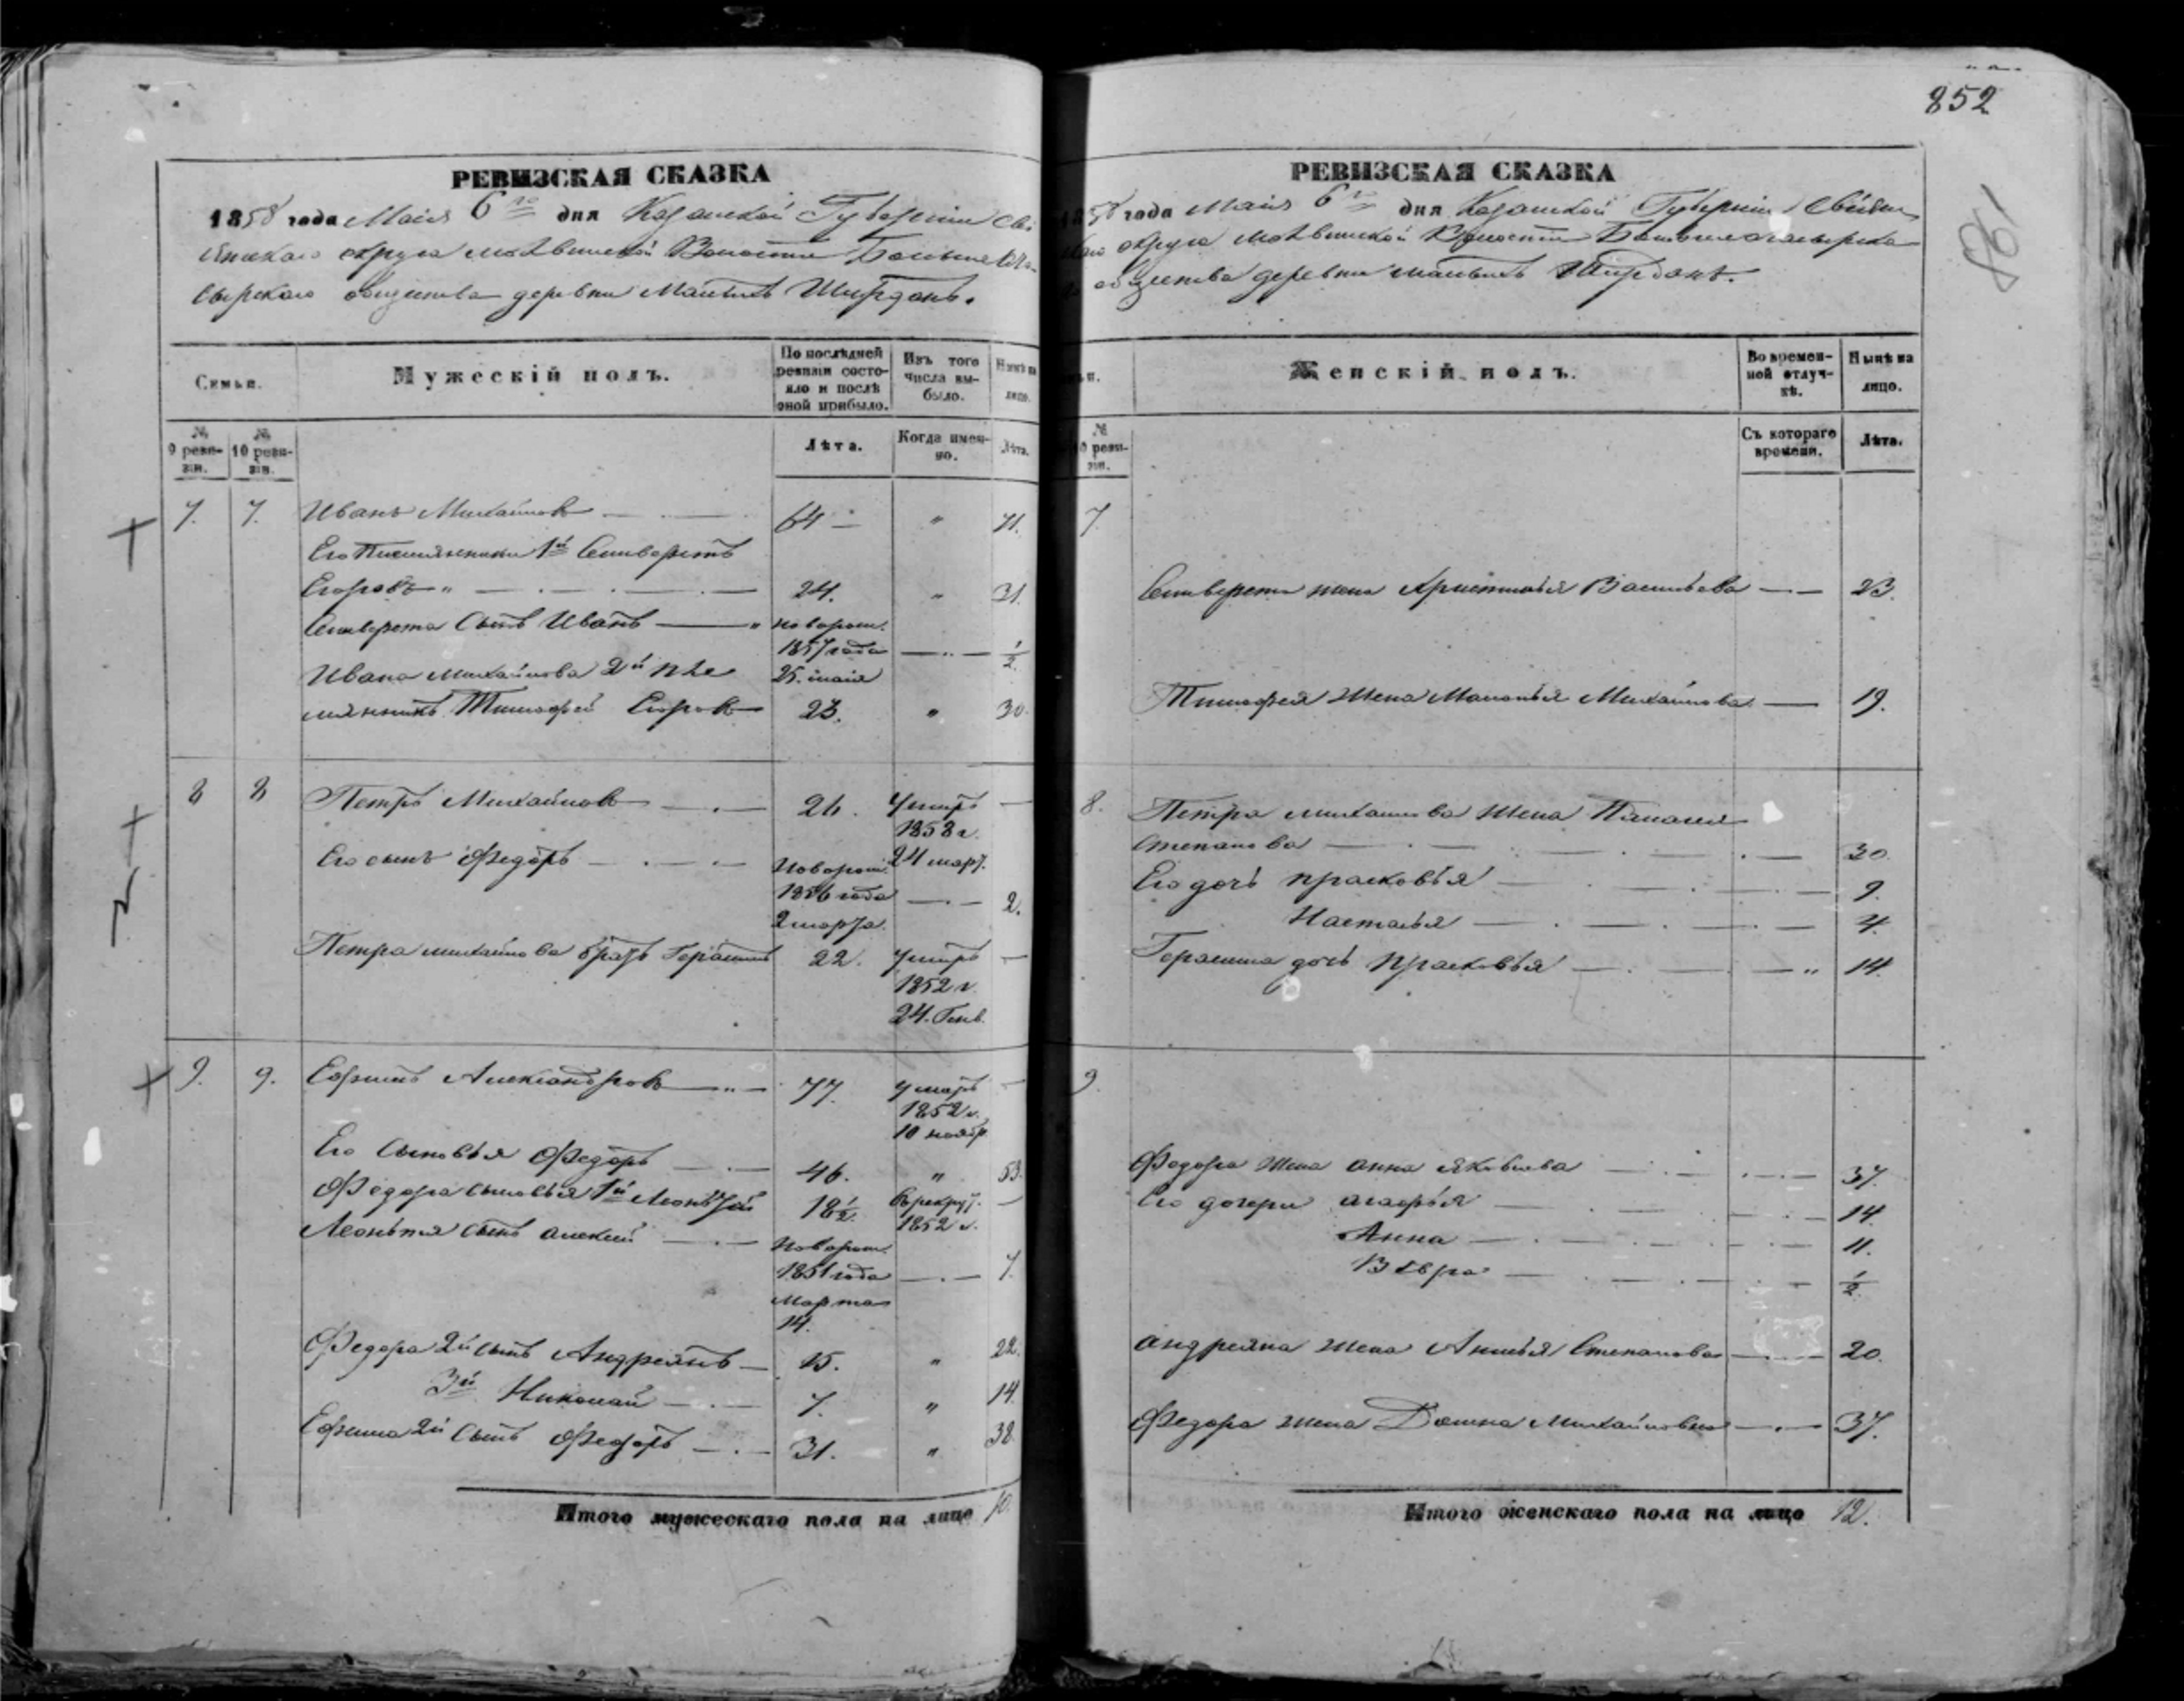 852
198
РЕВИЗСКАЯ СКАЗКА
1858 года Маія 6го дня Казанской Губерніи Сві
яжскаго округа Молвинской Волости Больше
сырскаго общества деревни Малыхъ Ширданъ.
Семьи.
Мужескій полъ.
По послѣдней ревизіи состояло и послѣ оной прибыло.
Изъ того числа выбыло.
Нынѣ на лицо.
№ 9 ревизіи.
№ 10 ревизіи.
Лѣта.
Когда именно.
Лѣта.
7. 7. Иванъ Михайловъ 64 " 71.
Его Племянники 1й Селиверстъ
Егоровъ " 24. " 31.
Селиверста Сынъ Иванъ " новорож. 1857 года 25. маія 1/2
Ивана Михайлова 2й пле
мянникъ Тимофей Егоровъ 23. " 30.
8 8 Петръ Михайловъ 26. Умеръ 1858 г. 24 март.
Его сынъ Федоръ Новорож. 1856 года 2 марта. 2.
Петра Михайлова братъ Герасимъ 22. Умеръ 1852 г. 24. Генв.
9. 9. Ефимъ Александровъ " 77. умеръ 1852 г. 10 ноябр.
Его Сыновья Федоръ 46. " 53.
Федора сыновья 1й Леонтій 18 1/2 В рекрут. 1852 г.
Леонтия сынъ Алексей Новорож. 1851 года Марта 14. 7.
Федора 2й сынъ Андреянъ 15. " 22.
3й Николай 7. " 14.
Ефима 2й Сынъ Федоръ 31. " 38.
Итого мужескаго пола на лицо 10.
РЕВИЗСКАЯ СКАЗКА
1858 года Маія 6го дня Казанской Губерніи Свіяж
скаго округа Молвинской Волости
общества деревни Малыхъ Ширданъ.
Женскій полъ.
Во временной отлучкѣ.
Нынѣ на лицо.
№ 10 ревизіи.
Съ котораго времени.
Лѣта.
7
Селиверста жена Христинья Васильева 23.
Тимофея Жена Маланья Михайлова 19.
8. Петра Михайлова Жена Палагея
Степанова 30.
Его дочь прасковья 9.
Настасья 4.
Герасима дочь Прасковья " 14.
9.
Федора Жена Анна Яковлева 37.
Его дочери Агафья 14.
Анна 11.
Вѣвра 1/2
Андреяна жена Анисья Степанова 20.
Федора жена Домна Михайловна 37.
Итого женскаго пола на лицо 12.